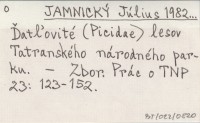 o
JAMNICKÝ Július 1982...
Ďatľovité (Picidae) lesov
Tatranského národného par-
ku. – Zbor. Prác o TNP
23: 123-152.
BT/082/0820